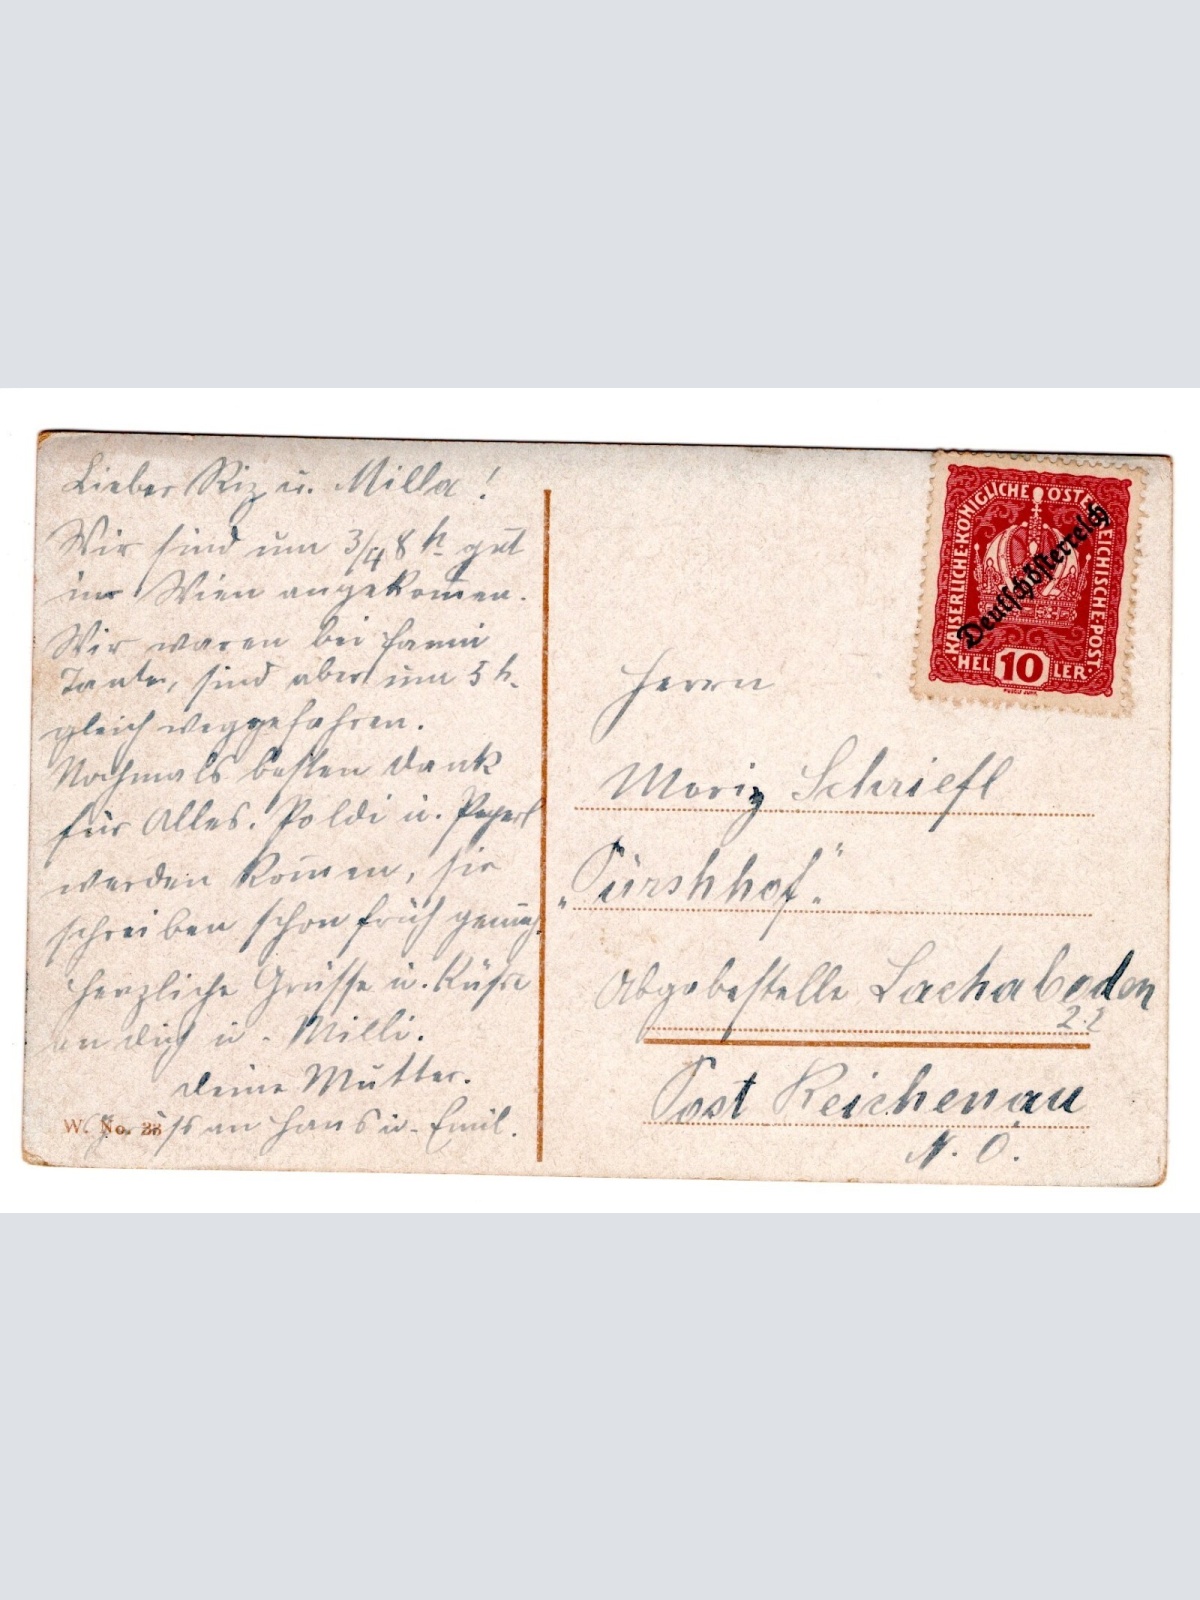 Lieber Riz u. Milla!
Wir sind um 3/4 8 h gut
in Wien angekom̅en.
Wir waren bei Fanni
Tante, sind aber um 5 h.
gleich weggefahren.
Nochmals besten Dank
für Alles. Poldi u. Peperl
werden kom̅en, sie
schreiben schon früh genug.
Herzliche Grüsse u. Küsse
an dich u. Milli.
Deine Mutter.
an Hans u. Emil.
W. No. 33
KAISERLICHE KÖNIGLICHE ÖSTERREICHISCHE POST
Deutschösterreich
HEL 10 LER
Herrn
Moriz Schriefl
„Pürshhof"
Abgabestelle Lachaboden
22
Post Reichenau
N. Ö.